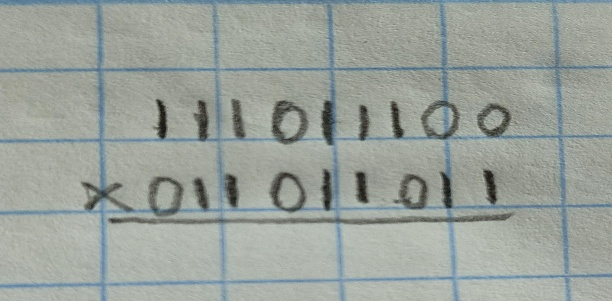 111011100
×011011011